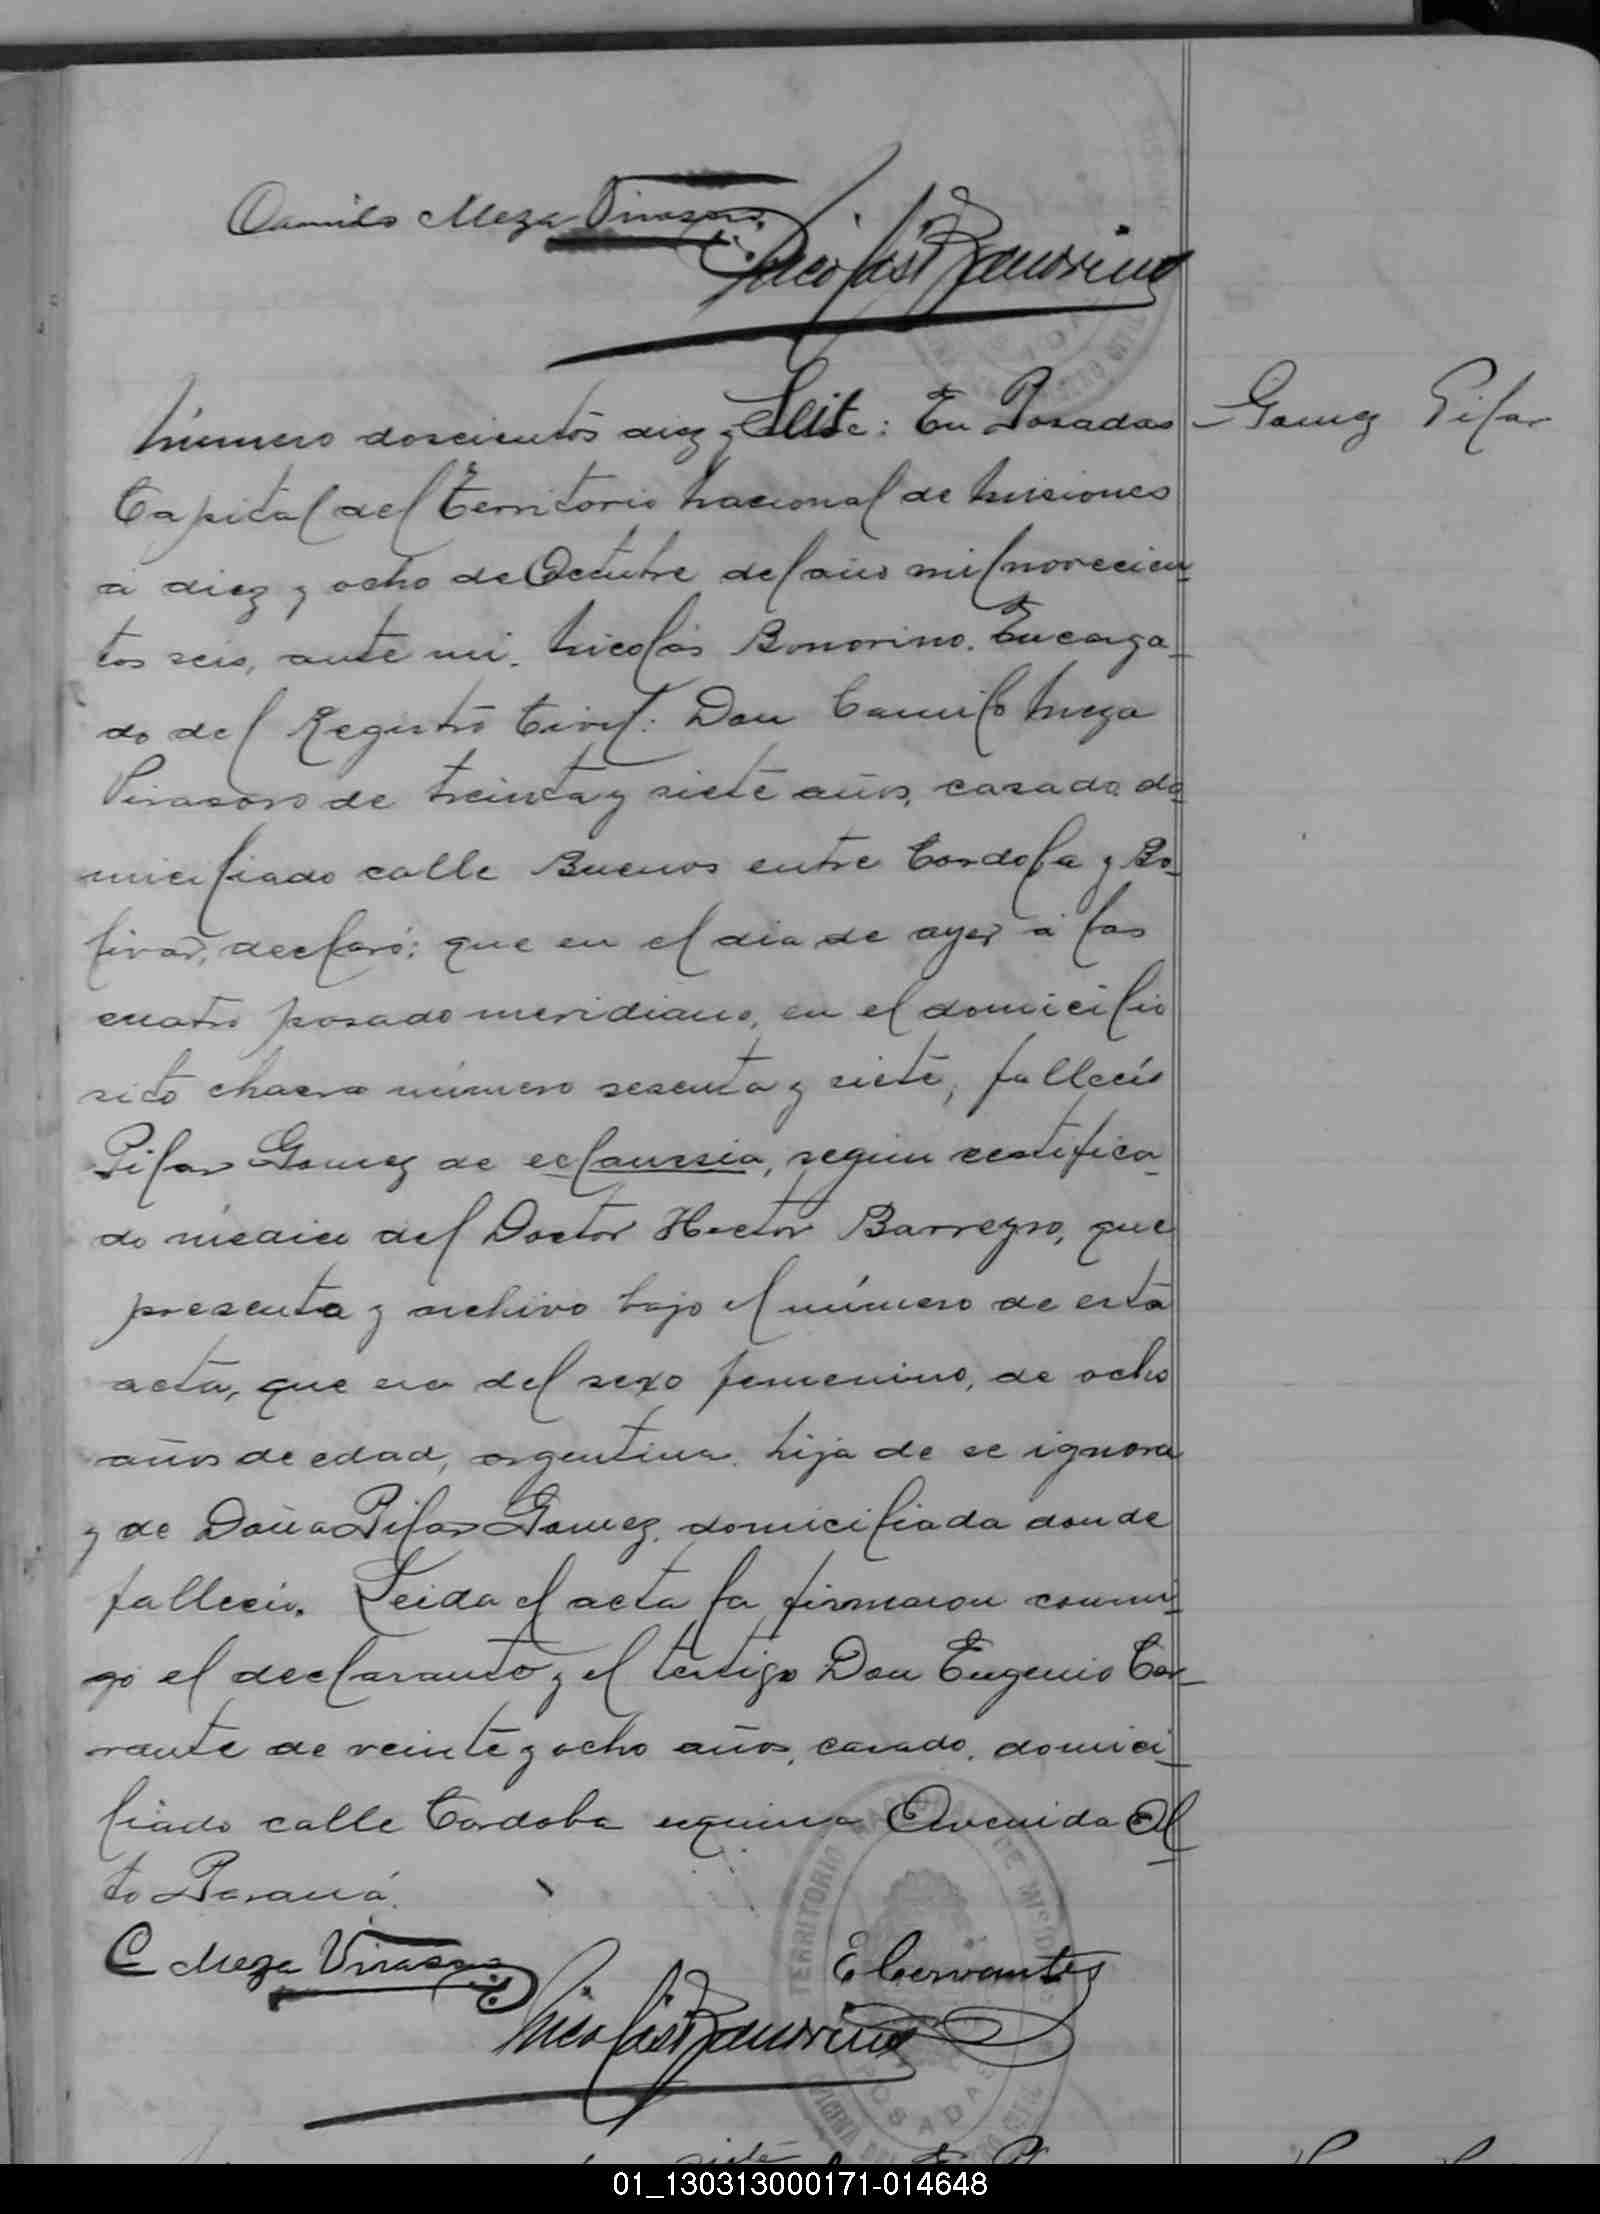 Camilo Meza Virasoro
Nicolás Bonorino
Número doscientos diez y siete: En Posadas
Gomez Pilar
Capital del Territorio Nacional de Misiones
á diez y ocho de Octubre del año mil novecien-
tos seis, ante mi, Nicolás Bonorino, Encarga-
do del Registro Civil: Don Camilo Meza
Virasoro de treinta y siete años, casado, do-
miciliado calle Buenos entre Cordoba y Bo-
livar, declaró: que en el dia de ayer á las
cuatro pasado meridiano, en el domicilio
sito chacra número sesenta y siete, falleció
Pilar Gomez de eclanssia, según certifica-
do médico del Doctor Hector Barreyro, que
presenta y archivo bajo el número de esta
acta, que era del sexo femenino, de ocho
años de edad, argentina, hija de se ignora
y de Doña Pilar Gomez, domiciliada donde
falleció. Leida el acta la firmaron conmi-
go el declarante y el testigo Don Eugenio Cer-
vante de veinte y ocho años, casado, domici-
liado calle Cordoba esquina Avenida Al-
to Paraná.
C Meza Virasoro
E Cervantes
Nicolás Bonorino
TERRITORIO NACIONAL DE MISIONES
POSADAS
siete
01_130313000171-014648